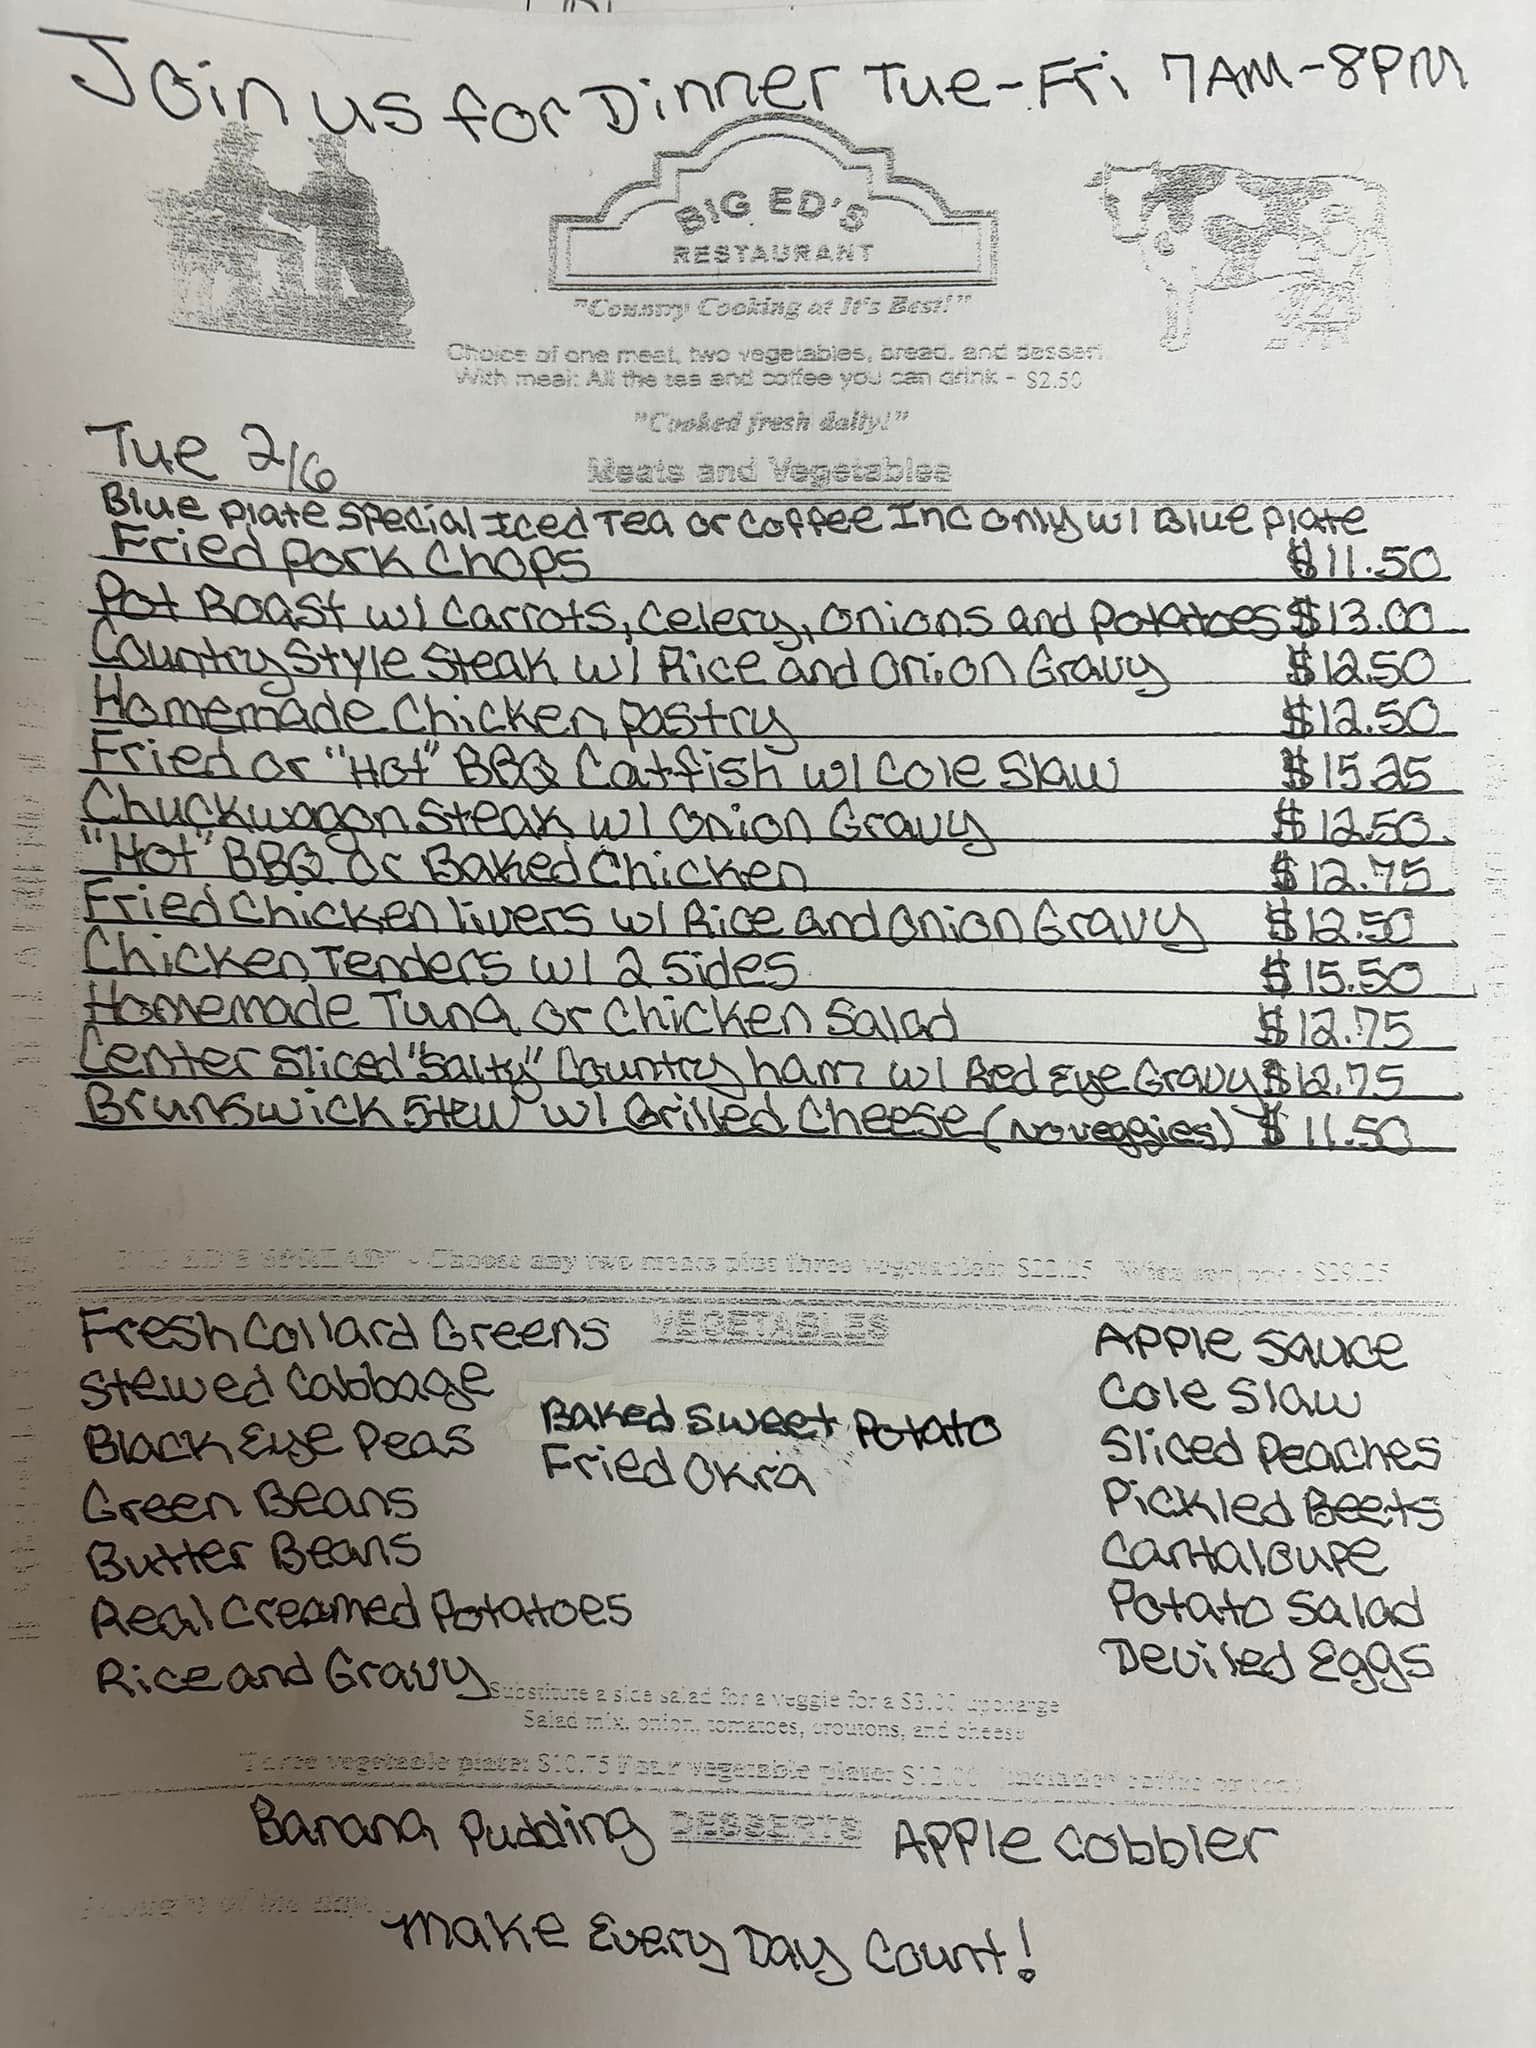 Join us for Dinner Tue-Fri 7AM-8PM
BIG ED'S
RESTAURANT
"Country Cooking at It's Best!"
Choice of one meat, two vegetables, bread, and dessert
With meal: All the tea and coffee you can drink - $2.50
"Cooked fresh daily!"
Tue 2/6
Meats and Vegetables
Blue Plate Special Iced Tea or Coffee Inc only w/ Blue Plate
Fried Pork Chops $11.50
Pot Roast w/ Carrots, Celery, Onions and Potatoes $13.00
Country Style Steak w/ Rice and Onion Gravy $12.50
Homemade Chicken Pastry $12.50
Fried or "Hot" BBQ Catfish w/ Cole Slaw $15.25
Chuckwagon Steak w/ Onion Gravy $12.50
"Hot" BBQ or Baked Chicken $12.75
Fried Chicken livers w/ Rice and Onion Gravy $12.50
Chicken Tenders w/ 2 Sides $15.50
Homemade Tuna or Chicken Salad $12.75
Center Sliced "Salty" Country ham w/ Red Eye Gravy $12.75
Brunswick Stew w/ Grilled Cheese (No veggies) $11.50
ED'S - Choose any two meats plus three vegetables:
VEGETABLES
Fresh Collard Greens
Stewed Cabbage
Black Eye Peas
Green Beans
Butter Beans
Real Creamed Potatoes
Rice and Gravy
Baked Sweet Potato
Fried Okra
Apple Sauce
Cole Slaw
Sliced Peaches
Pickled Beets
Cantaloupe
Potato Salad
Deviled Eggs
Substitute a side salad for a veggie for a $3.00 upcharge
Salad mix, onion, tomatoes, croutons, and cheese
Three vegetable plate: $10.75 Four vegetable plate:
DESSERTS
Banana Pudding
Apple Cobbler
Thought of the day:
Make Every Day Count!